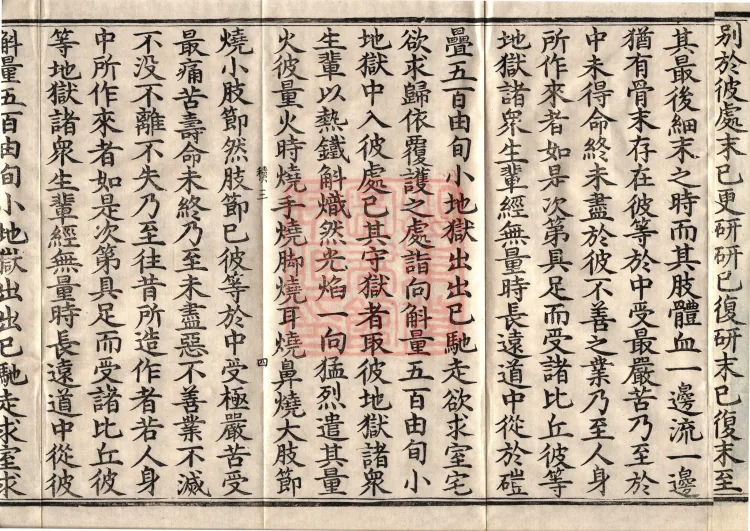 別於彼處末已更研研已復研末已復末至
其最後細末之時而其肢體血一邊流一邊
猶有骨末存在彼等於中受最嚴苦乃至於
中未得命終未盡於彼不善之業乃至人身
所作來者如是次第具足而受諸比丘彼等
地獄諸眾生輩經無量時長遠道中從於磑
疊五百由旬小地獄出出已馳走欲求室宅
欲求歸依覆護之處詣向斛量五百由旬小
地獄中入彼處已其守獄者取彼地獄諸眾
生輩以熱鐵斛熾然光焰一向猛烈遣其量
火彼量火時燒手燒脚燒耳燒鼻燒大肢節
四
燒小肢節然肢節已彼等於中受極嚴苦受
最痛苦壽命未終乃至未盡惡不善業不滅
不没不離不失乃至往昔所造作者若人身
中所作來者如是次第具足而受諸比丘彼
等地獄諸眾生輩經無量時長遠道中從彼
斛量五百由旬小地獄出出已馳走求室求